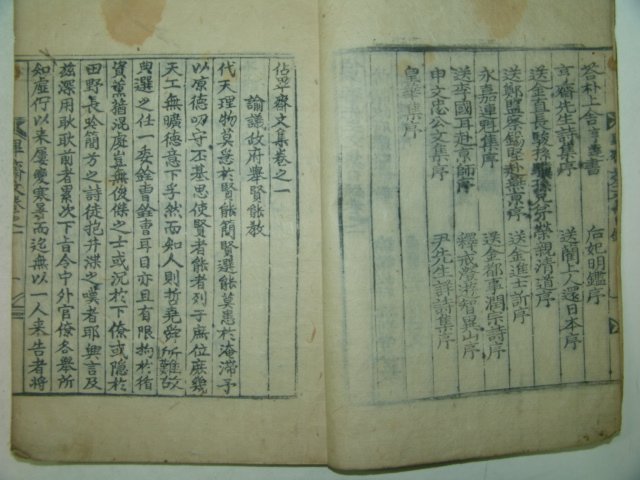 答朴上舍 書
亨齋先生詩集序 后妃明鑑序
送金直長駿孫驥孫兄弟榮親清道序 送闇上人還日本序
送鄭監察錫堅赴燕京序 送金進士訢序
永嘉連魁集序 送金都事潤宗詩序
送李國耳赴京師序 釋戒澄游智異山序
申文忠公文集序 尹先生祥詩集序
皇華集序
佔畢齋文集卷之一
諭議政府舉賢能教
代天理物莫急於賢能簡賢選能莫患於淹滯予
以凉德叨守丕基思使賢者能者列于庶位庶幾
天工無曠德意下孚然而知人則哲堯舜所難故
典選之任一委銓曹銓曹耳目亦且有限拘於循
資薰蕕混處豈無俊傑之士或沉於下僚或隱於
田野長吟簡兮之詩徒抱井渫之嘆者耶興言及
茲深用耿耿前者累次下旨令中外官僚各舉所
知虛佇以來屢變寒暑而迄無以一人来告者將